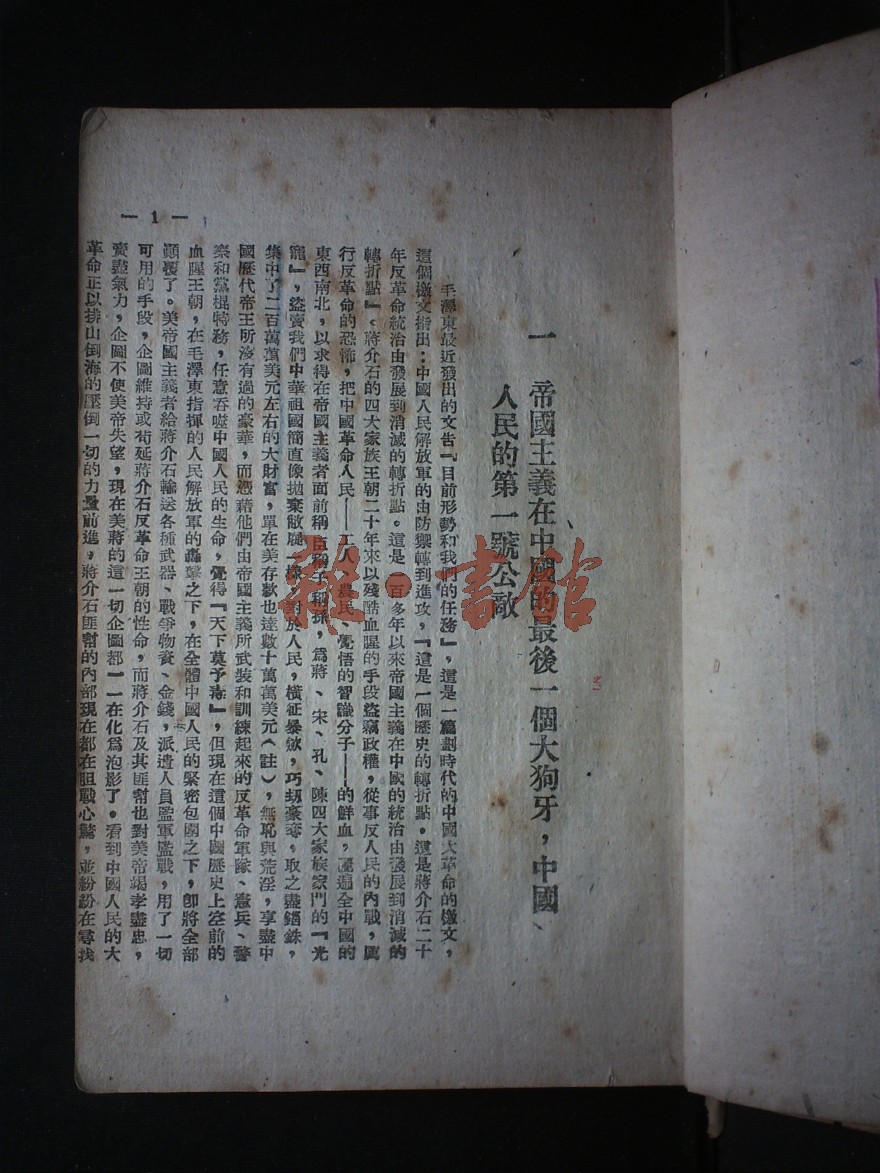 一 帝國主義在中國的最後一個大狗牙，中國
人民的第一號公敵
毛澤東最近發出的文告『目前形勢和我們的任務』，這是一篇劃時代的中國大革命的檄文，
這個檄文指出：中國人民解放軍的由防禦轉到進攻，『這是一個歷史的轉折點。這是蔣介石二十
年反革命統治由發展到消滅的轉折點。這是一百多年以來帝國主義在中國的統治由發展到消滅的
轉折點』。蔣介石的四大家族王朝二十年來以殘酷血腥的手段盜竊政權，從事反人民的內戰，厲
行反革命的恐怖，把中國革命人民——工人、農民、覺悟的智識分子——的鮮血，灑遍全中國的
東西南北，以求得在帝國主義者面前稱臣稱子稱孫，爲蔣、宋、孔、陳四大家族家門的『光
寵』，盜賣我們中華祖國簡直像拋棄敝屣一樣，對於人民，橫征暴斂，巧刧豪奪，取之盡錙銖，
集中了二百萬萬美元左右的大財富，單在美存款也達數十萬萬美元（註），無恥與荒淫，享盡中
國歷代帝王所沒有過的豪華，而憑藉他們由帝國主義所武裝和訓練起來的反革命軍隊、憲兵、警
察和黨棍特務，任意吞噬中國人民的生命，覺得『天下莫予毒』，但現在這個中國歷史上空前的
血腥王朝，在毛澤東指揮的人民解放軍的轟擊之下，在全體中國人民的緊密包圍之下，卽將全部
顚覆了。美帝國主義者給蔣介石輸送各種武器、戰爭物資、金錢，派遣人員監軍監戰，用了一切
可用的手段，企圖維持或苟延蔣介石反革命王朝的性命，而蔣介石及其匪幫也對美帝竭孝盡忠，
賣盡氣力，企圖不使美帝失望，現在美蔣的這一切企圖都一一在化爲泡影了。看到中國人民的大
革命正以排山倒海的壓倒一切的力量前進，蔣介石匪幫的內部現在都在胆戰心驚，並紛紛在尋找
— 1 —
雜·書館